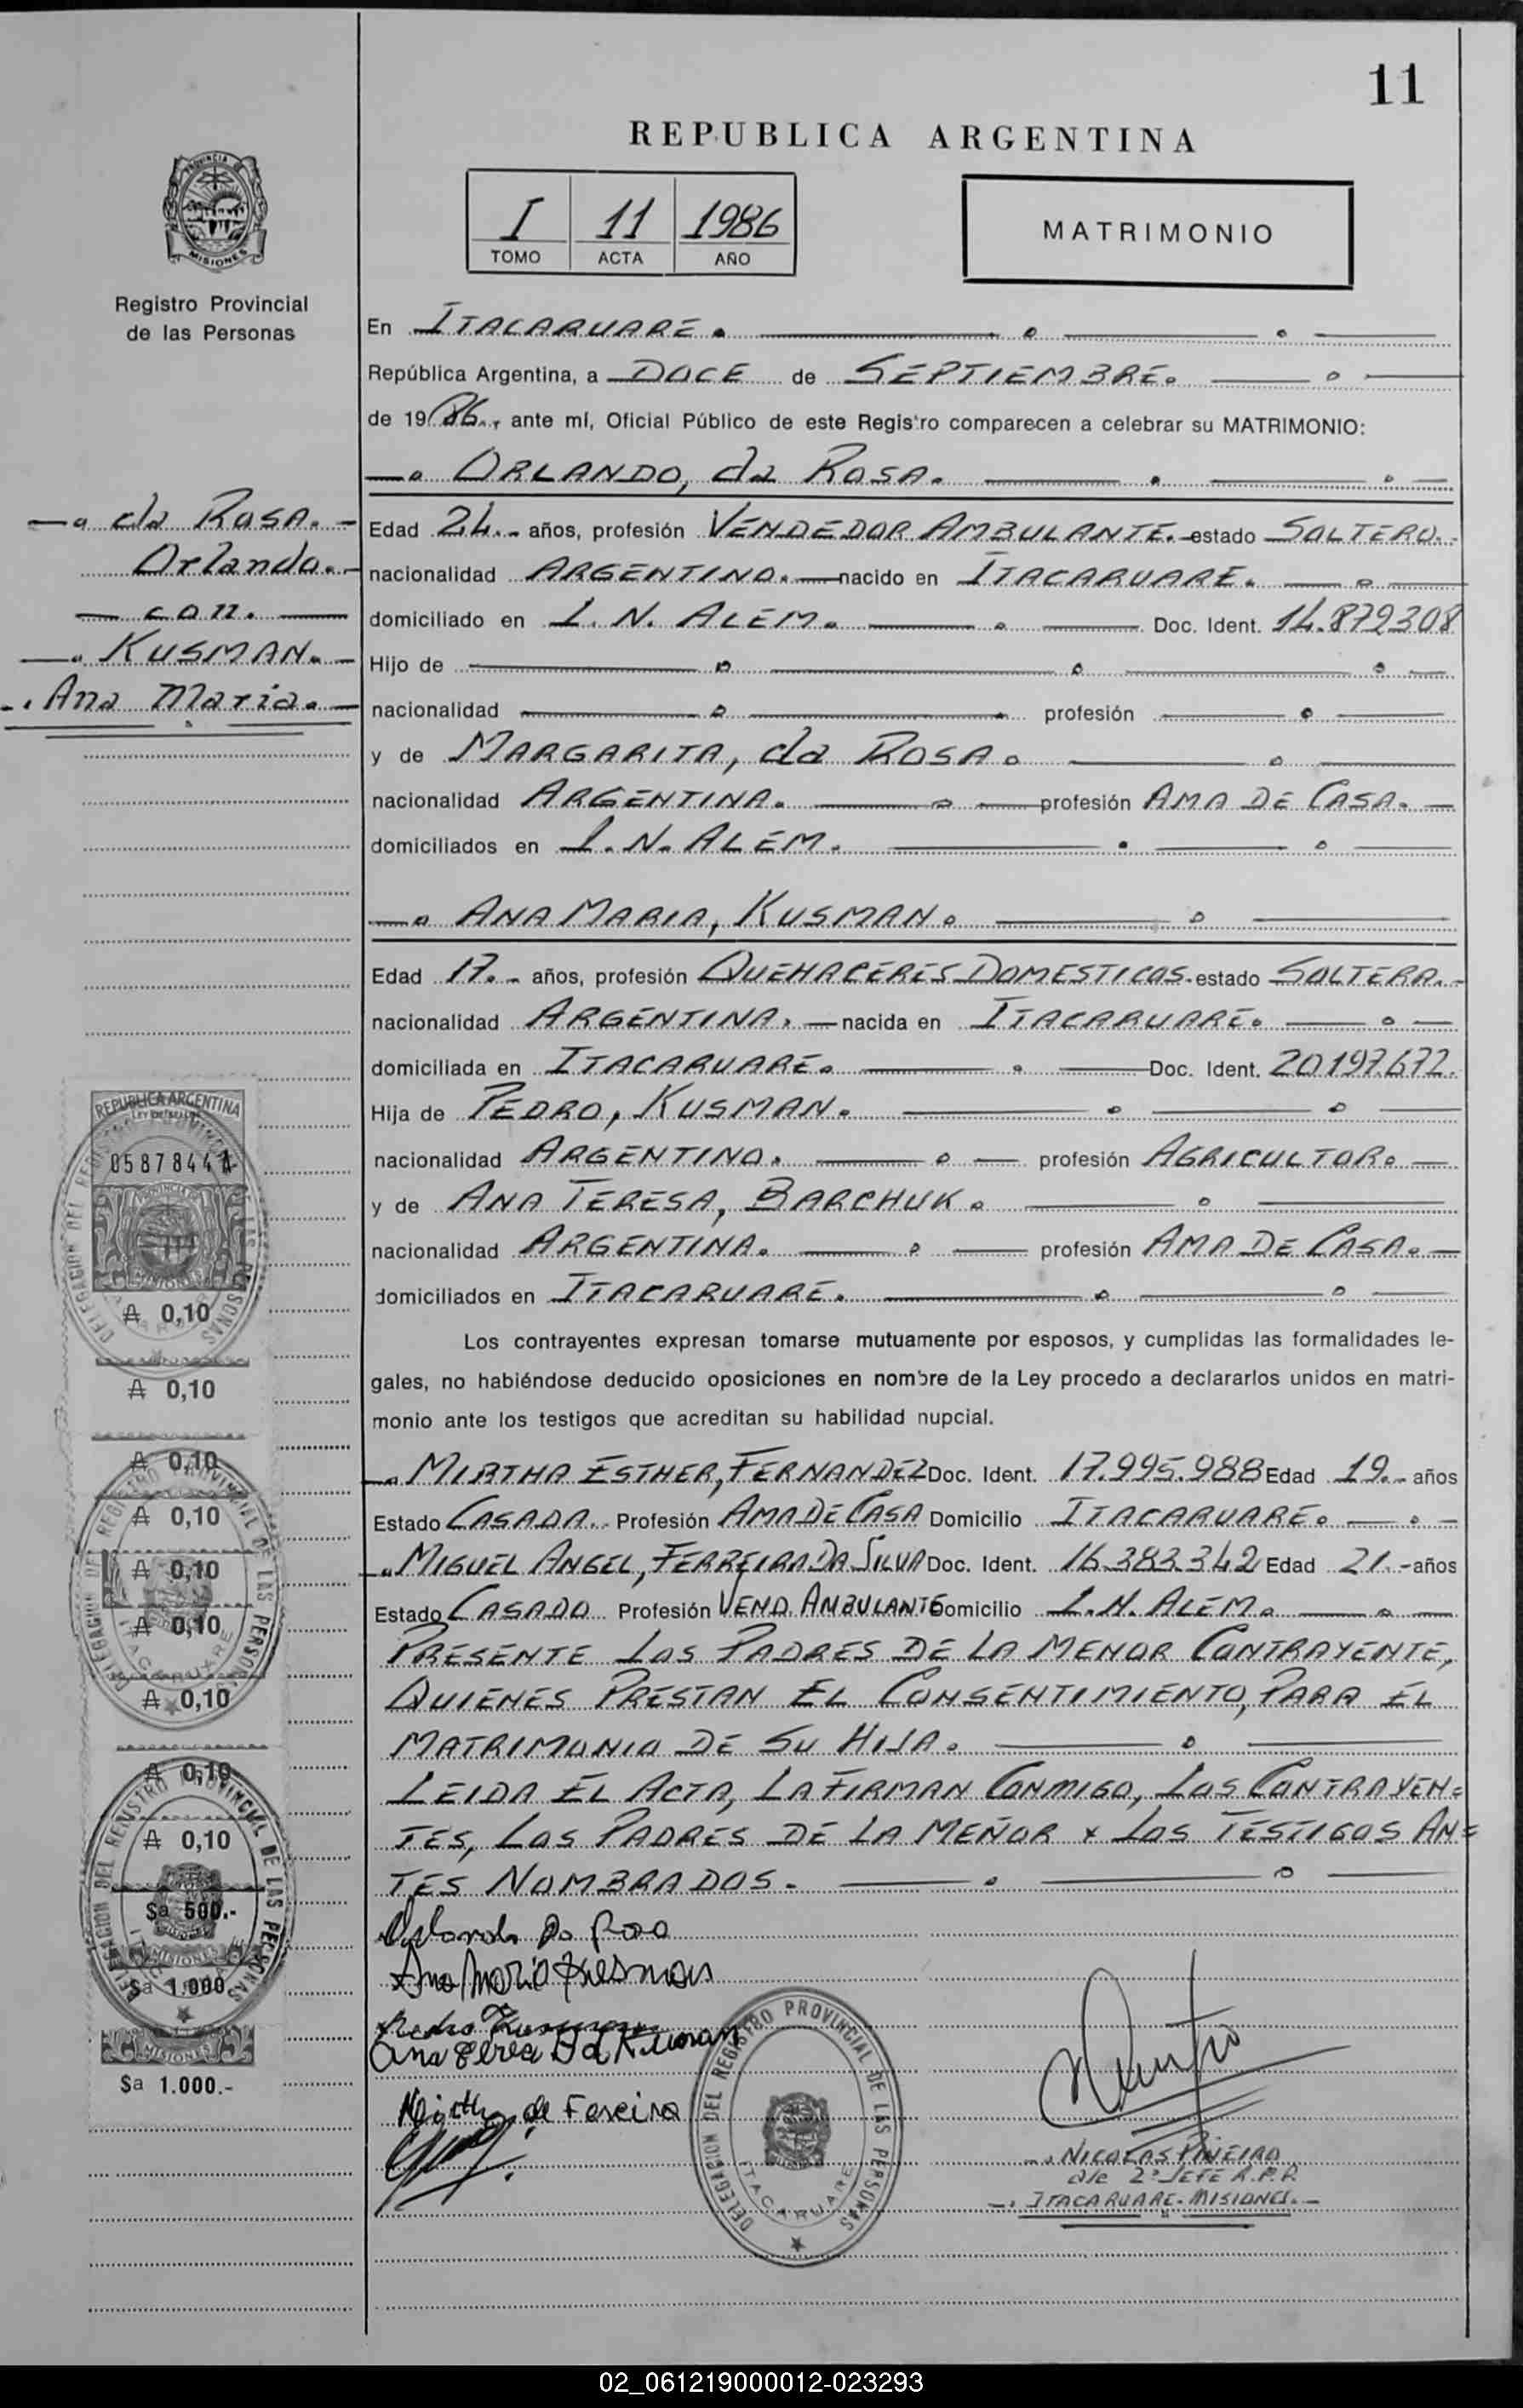 11
REPUBLICA ARGENTINA
I 11 1986
TOMO ACTA AÑO
MATRIMONIO
PROVINCIA DE
MISIONES
Registro Provincial
de las Personas
En ITACARUARE.
República Argentina, a DOCE de SEPTIEMBRE.
de 1986., ante mí, Oficial Público de este Registro comparecen a celebrar su MATRIMONIO:
ORLANDO, da ROSA.
da ROSA.
Orlando.
con.
KUSMAN.
Ana Maria.
Edad 24.- años, profesión VENDEDOR AMBULANTE. estado SOLTERO.
nacionalidad ARGENTINO. nacido en ITACARUARE.
domiciliado en L. N. ALEM. Doc. Ident. 14.872308
Hijo de
nacionalidad profesión
y de MARGARITA, da ROSA.
nacionalidad ARGENTINA. profesión AMA DE CASA.
domiciliados en L. N. ALEM.
ANA MARIA, KUSMAN.
Edad 17.- años, profesión QUEHACERES DOMESTICOS. estado SOLTERA.
nacionalidad ARGENTINA. nacida en ITACARUARE.
domiciliada en ITACARUARE. Doc. Ident. 20.197.672.
Hija de PEDRO, KUSMAN.
nacionalidad ARGENTINO. profesión AGRICULTOR.
y de ANA TERESA, BARCHUK.
nacionalidad ARGENTINA. profesión AMA DE CASA.
domiciliados en ITACARUARE.
Los contrayentes expresan tomarse mutuamente por esposos, y cumplidas las formalidades le-
gales, no habiéndose deducido oposiciones en nombre de la Ley procedo a declararlos unidos en matri-
monio ante los testigos que acreditan su habilidad nupcial.
MIRTHA ESTHER, FERNANDEZ Doc. Ident. 17.995.988 Edad 19.- años
Estado CASADA. Profesión AMA DE CASA Domicilio ITACARUARE.
MIGUEL ANGEL, FERREIRA DA SILVA Doc. Ident. 16.383.342 Edad 21.- años
Estado CASADO Profesión VEND. AMBULANTE Domicilio L.N. ALEM.
PRESENTE LOS PADRES DE LA MENOR CONTRAYENTE,
QUIENES PRESTAN EL CONSENTIMIENTO, PARA EL
MATRIMONIO DE SU HIJA.
LEIDA EL ACTA, LA FIRMAN CONMIGO, LOS CONTRAYEN=
TES, LOS PADRES DE LA MENOR Y LOS TESTIGOS AN=
TES NOMBRADOS.
Orlando Da Rosa
Ana Maria Kusman
Pedro Kusman
Ana Teresa B d Kusman
Mirtha de Ferreira
NICOLAS PIÑEIRO
2º JEFE R.P.P.
ITACARUARE - MISIONES.
DELEGACION DEL REGISTRO PROVINCIAL DE LAS PERSONAS
ITACARUARE
REPUBLICA ARGENTINA
05878444
MISIONES
₳ 0,10
₳ 0,10
₳ 0,10
₳ 0,10
₳ 0,10
₳ 0,10
₳ 0,10
₳ 0,10
₳ 0,10
$a 500.-
$a 1.000
MISIONES
$a 1.000.-
02_061219000012-023293